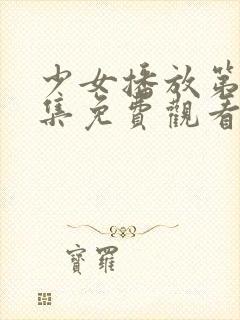 少女播放第
集免費觀看
寶羅